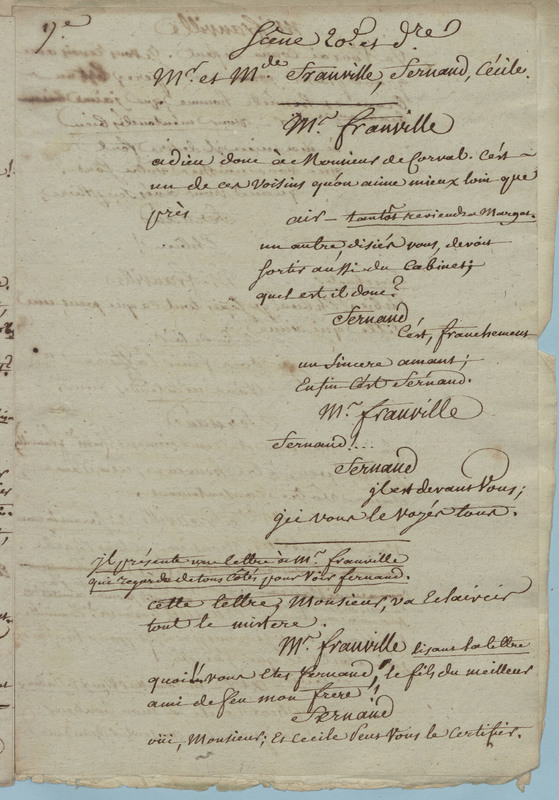 9.e
Scène 20.e et d.re
M.r et M.de Franville, Fernand, Cécile.
M.r franville
adieu donc à Monsieur de Corval. C'est
un de ces voisins qu'on aime mieux loin que
près air - tantôt reviendra Margot.
un autre disiés vous, devoit
sortir aussi du Cabinet;
quel est il donc?
Fernand
C'est, franchement
un Sincere amant;
Enfin C'est Fernand.
M.r franville
Fernand!...
Fernand
jl est devant Vous;
jci vous le voyés tous.
jl présente une lettre à M.r franville
qui regarde de tous côtés pour Voir fernand.
cette lettre, Monsieur, va Eclaircir
tout le mistere.
M.r franville lisant la lettre
quoi!! vous etes fernand, le fils du meilleur
ami de feu mon frere!
Fernand
oui, Monsieur; Et Cecile Peut Vous le Certifier.